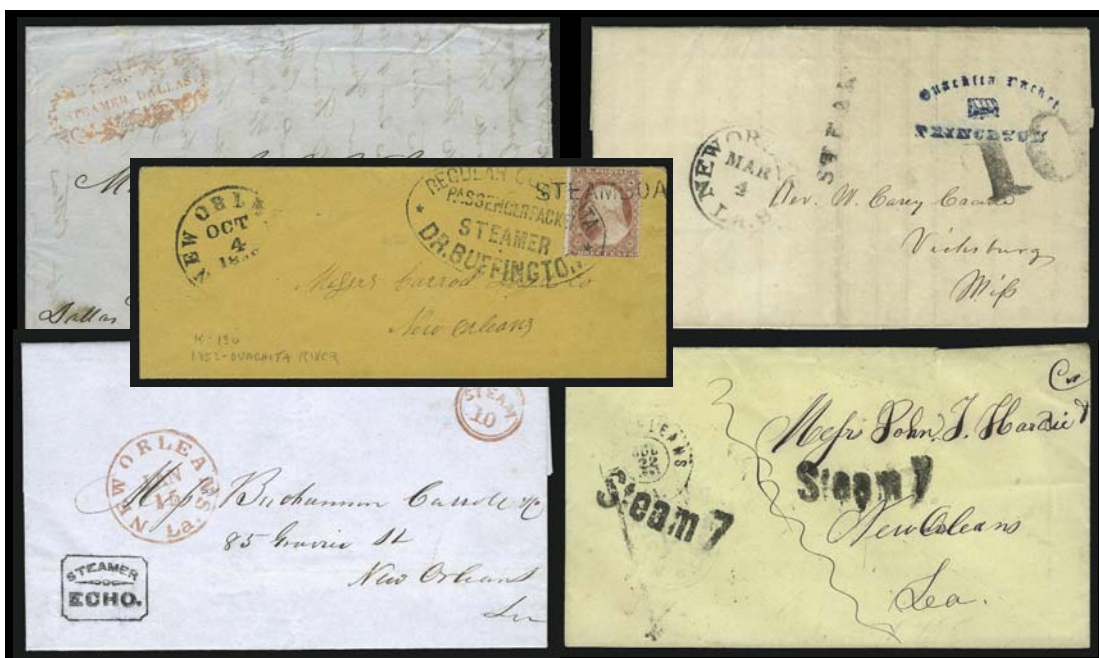 STEAMER DALLAS
Dallas
NEW ORL
OCT
4
REGULAR
PASSENGER PACKET
STEAMER
DR. BUFFINGTON
STEAMBOA
New Orleans
K-130
1852-OUACHITA RIVER
Ouachita Packet
PRINCETON
STEAM
10
NEW OR
MAR
4
La.
Rev. W. Carey
Vicksburg
Miss
STEAM
10
NEW ORLEANS
15
La.
Mess Buchannon Carroll & Co
85 Gravier St
New Orleans
La
STEAMER
ECHO.
LEANS
22
Steam 7
Steam 7
Messrs John T. Hardie
New Orleans
Lea.